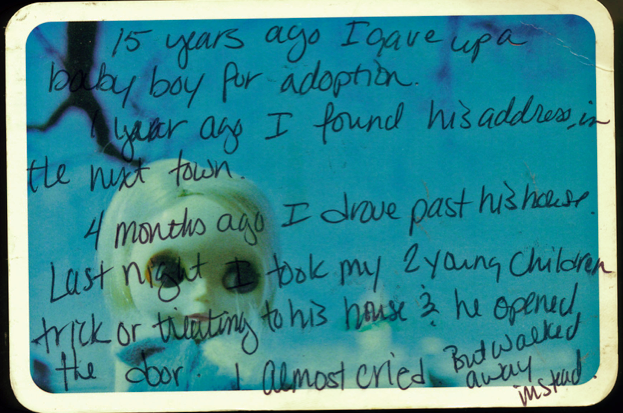 15 years ago I gave up a
baby boy for adoption.
1 year ago I found his address, in
the next town.
4 months ago I drove past his house.
Last night I took my 2 young children
trick or treating to his house & he opened
the door. I almost cried But walked
away
instead.